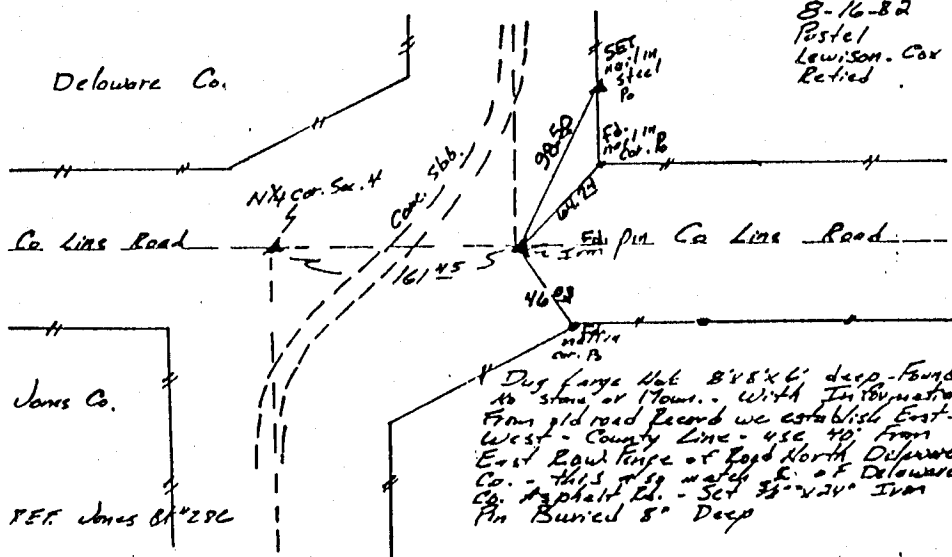 8-16-82
Pustel
Lewison. Cox
Retied
Delaware Co.
SET
nail in
steel
Po
Fd.
nail in
cor. Po
98.50
64.24
N¼ cor. Sec. 4
Conc. Slab.
Co Line Road
161 45
Fd. Iron pin
Co Line Road
46
Fd
nail in
cor. Po
Jones Co.
Dug Large Hole 8'x8'x6' deep - Found
No stone or Moun. - With Information
From old road Record we establish East-
West - County Line - use 40' From
East Row Fence of Road North Delaware
Co. - this also match of Delaware
Co. Asphalt Rd. - Set x24" Iron
Pin Buried 8" Deep
REF. Jones